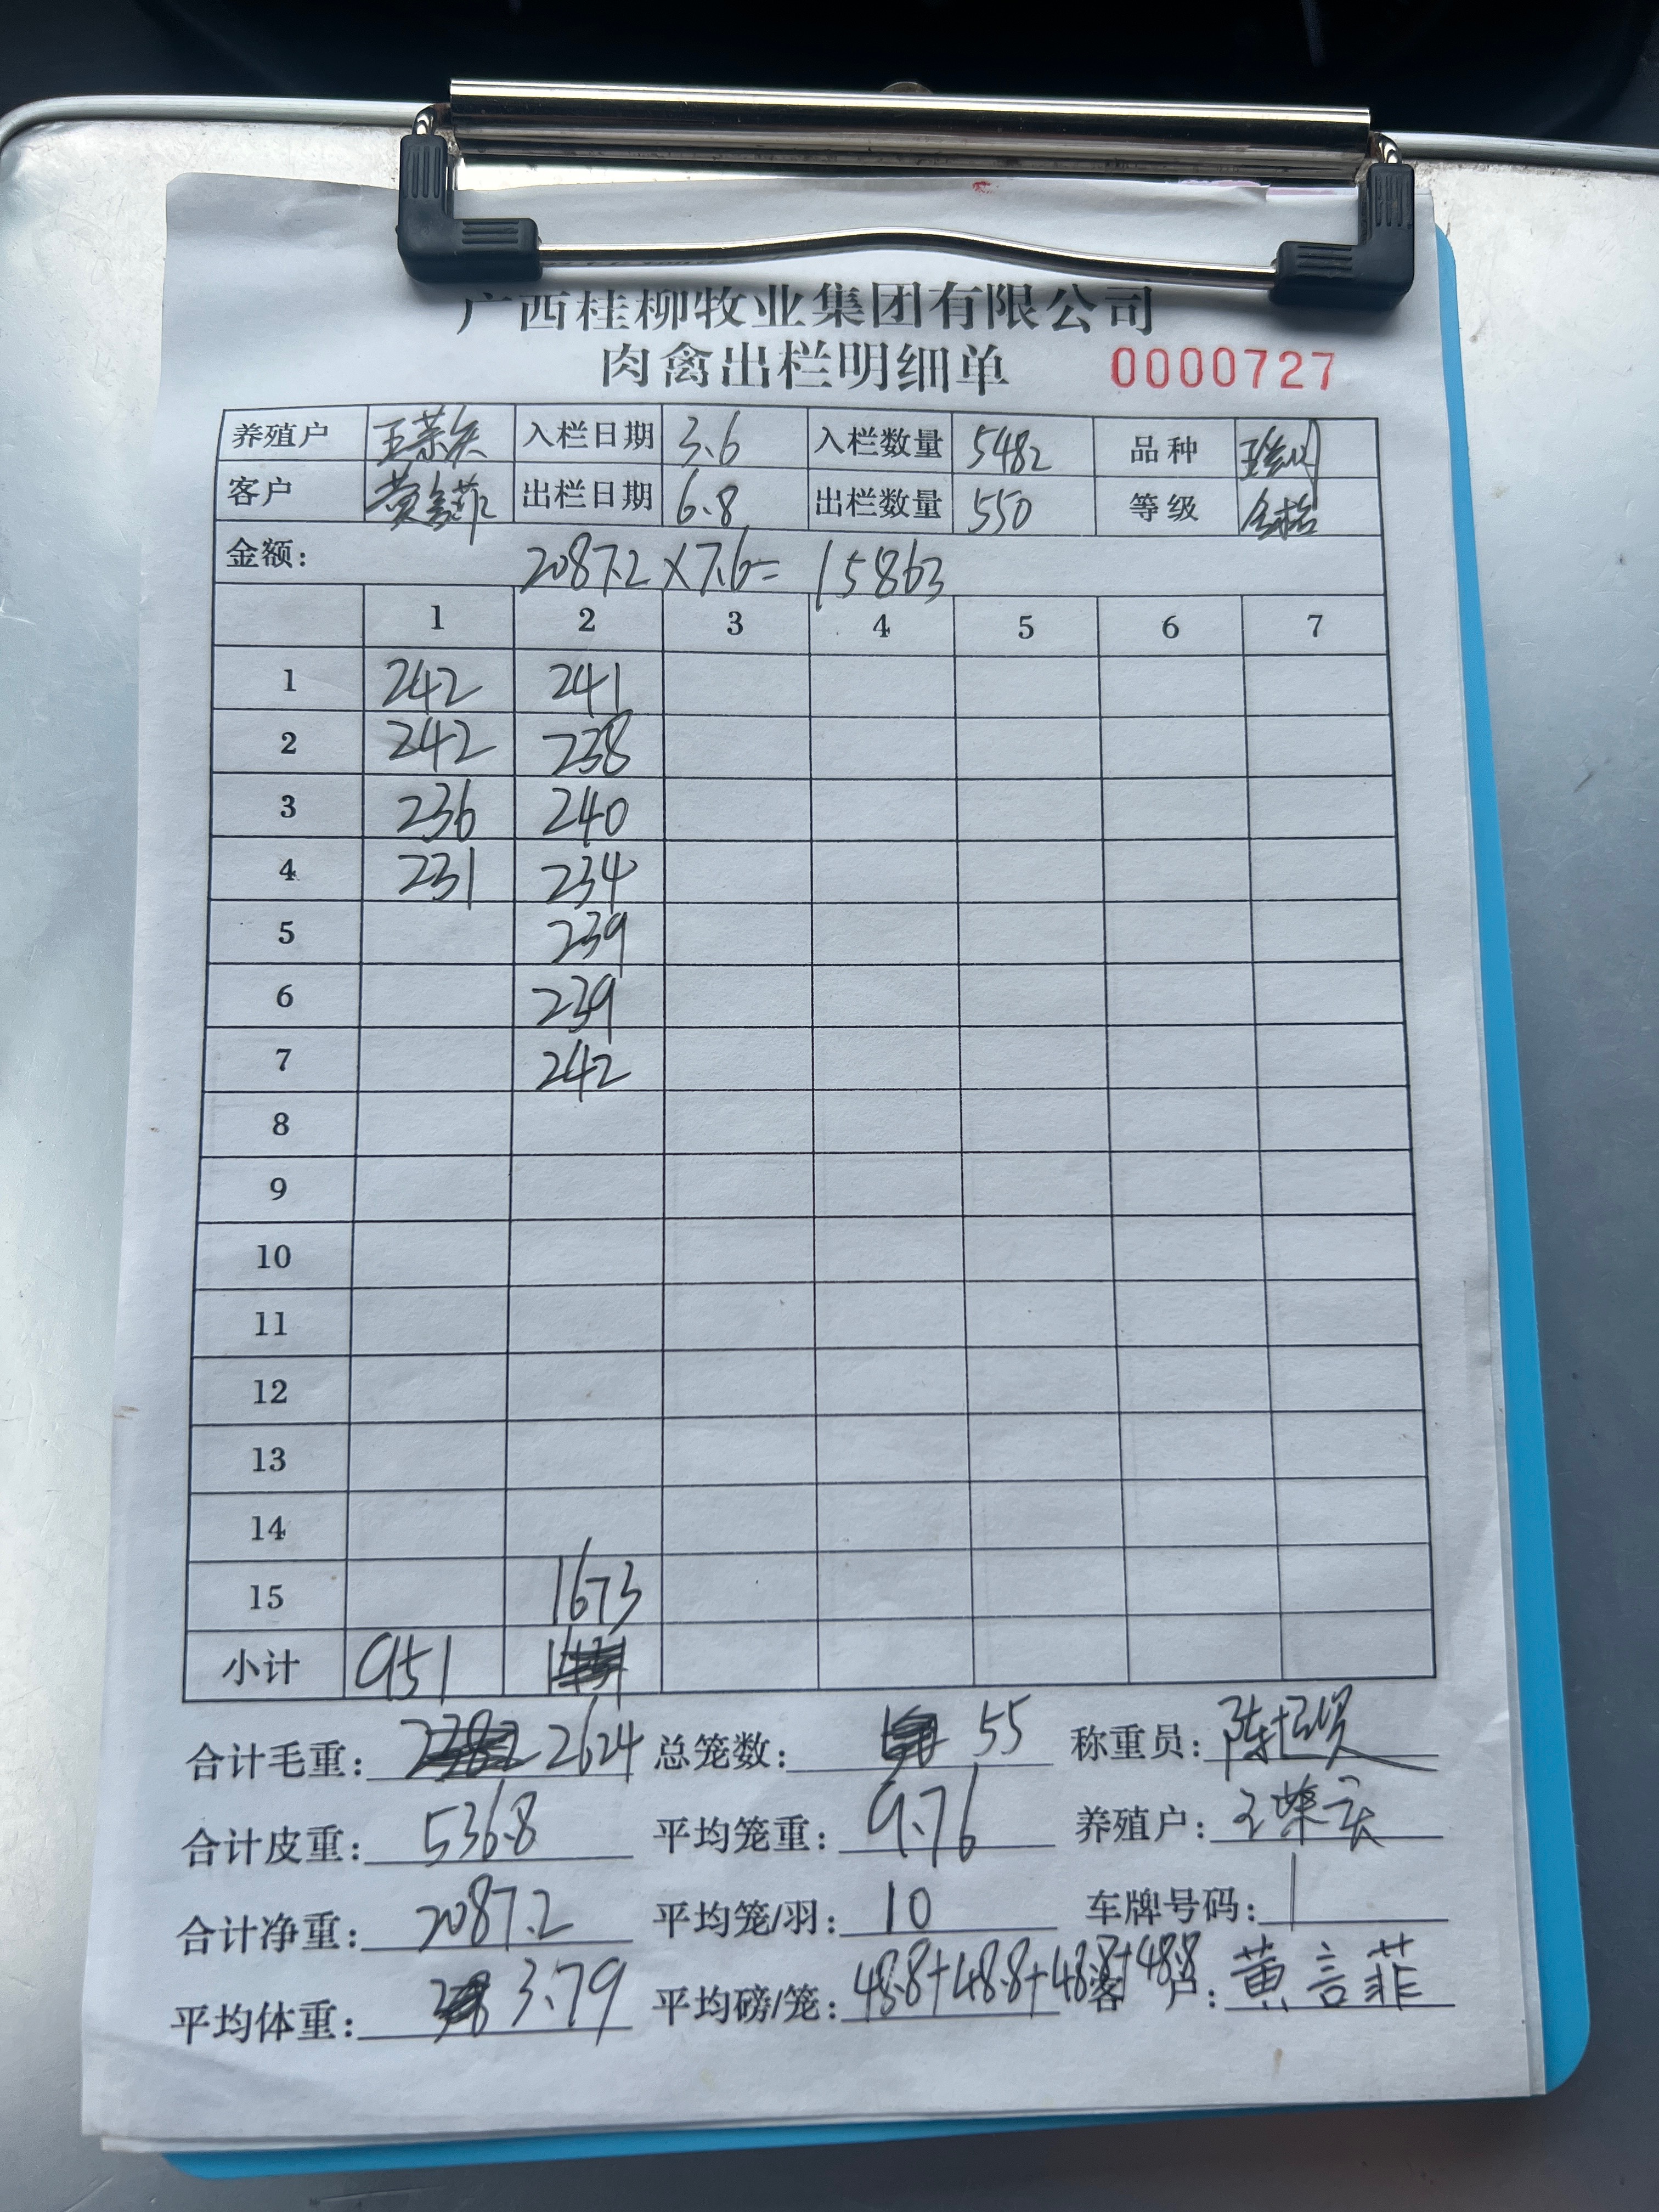 广西桂柳牧业集团有限公司
肉禽出栏明细单 0000727
养殖户 入栏日期 3.6 入栏数量 5482 品种
客户 出栏日期 6.8 出栏数量 550 等级 合格
金额: 2087.2×7.6= 15863
1 2 3 4 5 6 7
1 242 241
2 242 238
3 236 240
4 231 234
5 239
6 239
7 242
8
9
10
11
12
13
14
15 1673
小计 951
合计毛重: 2624 总笼数: 55 称重员: 陈
合计皮重: 536.8 平均笼重: 9.76 养殖户: 王荣
合计净重: 2087.2 平均笼/羽: 10 车牌号码: 1
平均体重: 3.79 平均磅/笼: 48.8+48.8+48.8+48.8 客户: 黄言菲